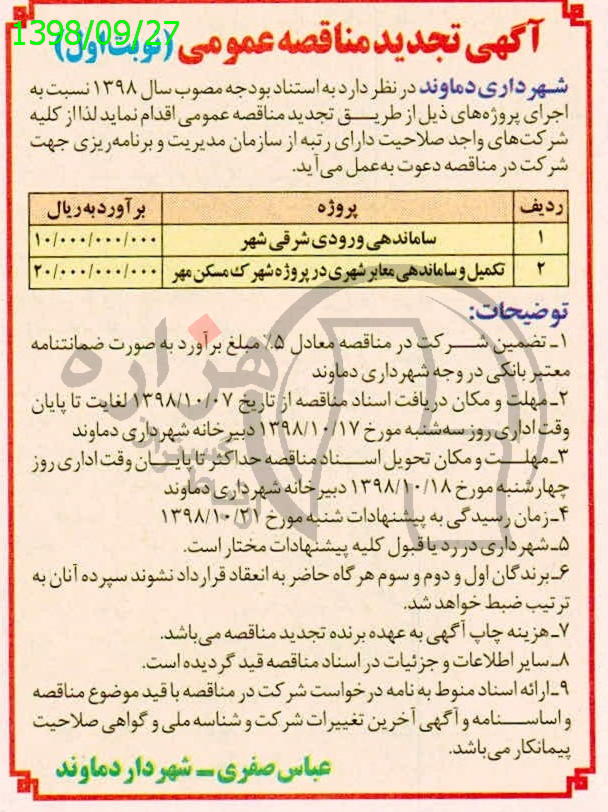 1398/09/27
آگهی تجدید مناقصه عمومی (نوبت اول)
شهرداری دماوند در نظر دارد به استناد بودجه مصوب سال ۱۳۹۸ نسبت به
اجرای پروژه‌های ذیل از طریق تجدید مناقصه عمومی اقدام نماید لذا از کلیه
شرکت‌های واجد صلاحیت دارای رتبه از سازمان مدیریت و برنامه‌ریزی جهت
شرکت در مناقصه دعوت به‌عمل می‌آید.
ردیف پروژه برآورد به ریال
۱ ساماندهی ورودی شرقی شهر ۱۰/۰۰۰/۰۰۰/۰۰۰
۲ تکمیل و ساماندهی معابر شهری در پروژه شهرک مسکن مهر ۲۰/۰۰۰/۰۰۰/۰۰۰
توضیحات:
۱ـ تضمین شرکت در مناقصه معادل ۵٪ مبلغ برآورد به صورت ضمانتنامه
معتبر بانکی در وجه شهرداری دماوند
۲ـ مهلت و مکان دریافت اسناد مناقصه از تاریخ ۱۳۹۸/۱۰/۰۷ لغایت تا پایان
وقت اداری روز سه‌شنبه مورخ ۱۳۹۸/۱۰/۱۷ دبیرخانه شهرداری دماوند
۳ـ مهلت و مکان تحویل اسناد مناقصه حداکثر تا پایان وقت اداری روز
چهارشنبه مورخ ۱۳۹۸/۱۰/۱۸ دبیرخانه شهرداری دماوند
۴ـ زمان رسیدگی به پیشنهادات شنبه مورخ ۱۳۹۸/۱۰/۲۱
۵ـ شهرداری در رد یا قبول کلیه پیشنهادات مختار است.
۶ـ برندگان اول و دوم و سوم هرگاه حاضر به انعقاد قرارداد نشوند سپرده آنان به
ترتیب ضبط خواهد شد.
۷ـ هزینه چاپ آگهی به عهده برنده تجدید مناقصه می‌باشد.
۸ـ سایر اطلاعات و جزئیات در اسناد مناقصه قید گردیده است.
۹ـ ارائه اسناد منوط به نامه درخواست شرکت در مناقصه با قید موضوع مناقصه
و اساسنامه و آگهی آخرین تغییرات شرکت و شناسه ملی و گواهی صلاحیت
پیمانکار می‌باشد.
عباس صفری ـ شهردار دماوند
هزاره